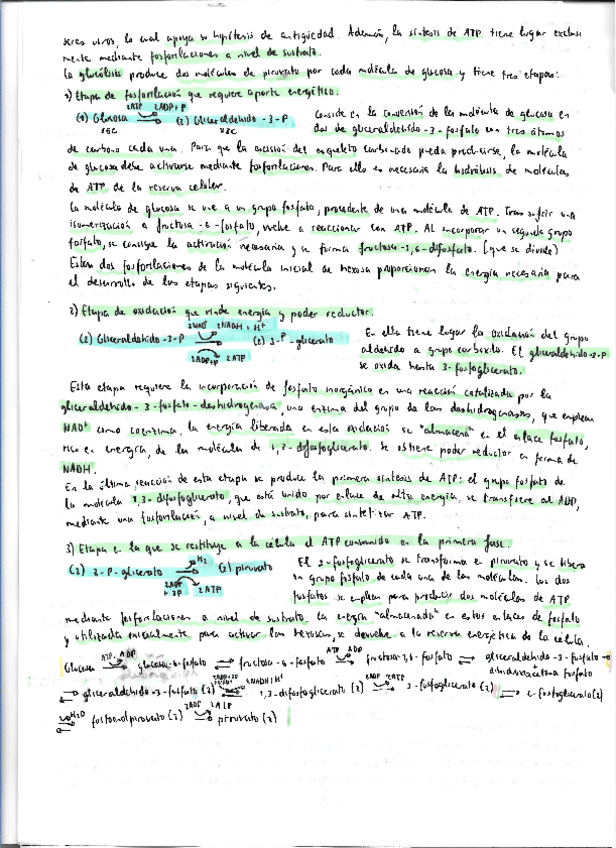 seres vivos, lo cual apoya su hipótesis de antigüedad. Además, la síntesis de ATP tiene lugar exclusi
mente mediante fosforilaciones a nivel de sustrato.
La glucólisis produce dos moléculas de piruvato por cada molécula de glucosa y tiene tres etapas:
1) Etapa de fosforilación que requiere aporte energético.
2ATP 2ADP+P
(1) Glucosa (2) Gliceraldehido-3-P
Consiste en la conversión de la molécula de glucosa en
dos de gliceraldehido-3-fosfato con tres átomos
de carbono cada una. Para que la escisión del esqueleto carbonado pueda producirse, la molécula
de glucosa debe activarse mediante fosforilaciones. Para ello es necesaria la hidrólisis de moléculas
de ATP de la reserva celular.
La molécula de glucosa se une a un grupo fosfato, procedente de una molécula de ATP. Tras sufrir una
isomerización a fructosa-6-fosfato, vuelve a reaccionar con ATP. Al incorporar un segundo grupo
fosfato, se consigue la activación necesaria y se forma fructosa-1,6-difosfato. (que se divide)
Estas dos fosforilaciones de la molécula inicial de hexosa proporcionan la energía necesaria para
el desarrollo de las etapas siguientes.
2) Etapa de oxidación que rinde energía y poder reductor.
2NAD+ 2NADH+H+
(2) Gliceraldehido-3-P (2) 3-P-glicerato
2ADP+P 2ATP
En ella tiene lugar la oxidación del grupo
aldehido a grupo carboxilo. El gliceraldehido-3-P
se oxida hasta 3-fosfoglicerato.
Esta etapa requiere la incorporación de fosfato inorgánico en una reacción catalizada por la
gliceraldehido-3-fosfato-deshidrogenasa, una enzima del grupo de las deshidrogenasas, que emplean
NAD+ como coenzima. La energía liberada en esta oxidación se "almacena" en el enlace fosfato,
rico en energía, de la molécula de 1,3-difosfoglicerato. Se obtiene poder reductor en forma de
NADH.
En la última reacción de esta etapa se produce la primera síntesis de ATP: el grupo fosfato de
la molécula 1,3-difosfoglicerato, que está unido por enlace de alta energía, se transfiere al ADP,
mediante una fosforilación, a nivel de sustrato, para sintetizar ATP.
3) Etapa en la que se restituye a la célula el ATP consumido en la primera fase.
(2) 3-P-glicerato (2) piruvato
2ADP+2P 2ATP
El 3-fosfoglicerato se transforma en piruvato y se libera
un grupo fosfato de cada una de las moléculas. Los dos
fosfatos se emplean para producir dos moléculas de ATP
mediante fosforilaciones a nivel de sustrato. La energía "almacenada" en estos enlaces de fosfato
y utilizada inicialmente para activar las hexosas, se devuelve a la reserva energética de la célula.
ATP ADP ATP ADP
Glucosa glucosa-6-fosfato fructosa-6-fosfato fructosa-1,6-fosfato gliceraldehido-3-fosfato
dihidroxiacetona fosfato
gliceraldehido-3-fosfato (2) 1,3-difosfoglicerato (2) 3-fosfoglicerato (2) 2-fosfoglicerato (2)
H2O fosfoenolpiruvato (2) 2ADP 2ATP piruvato (2)